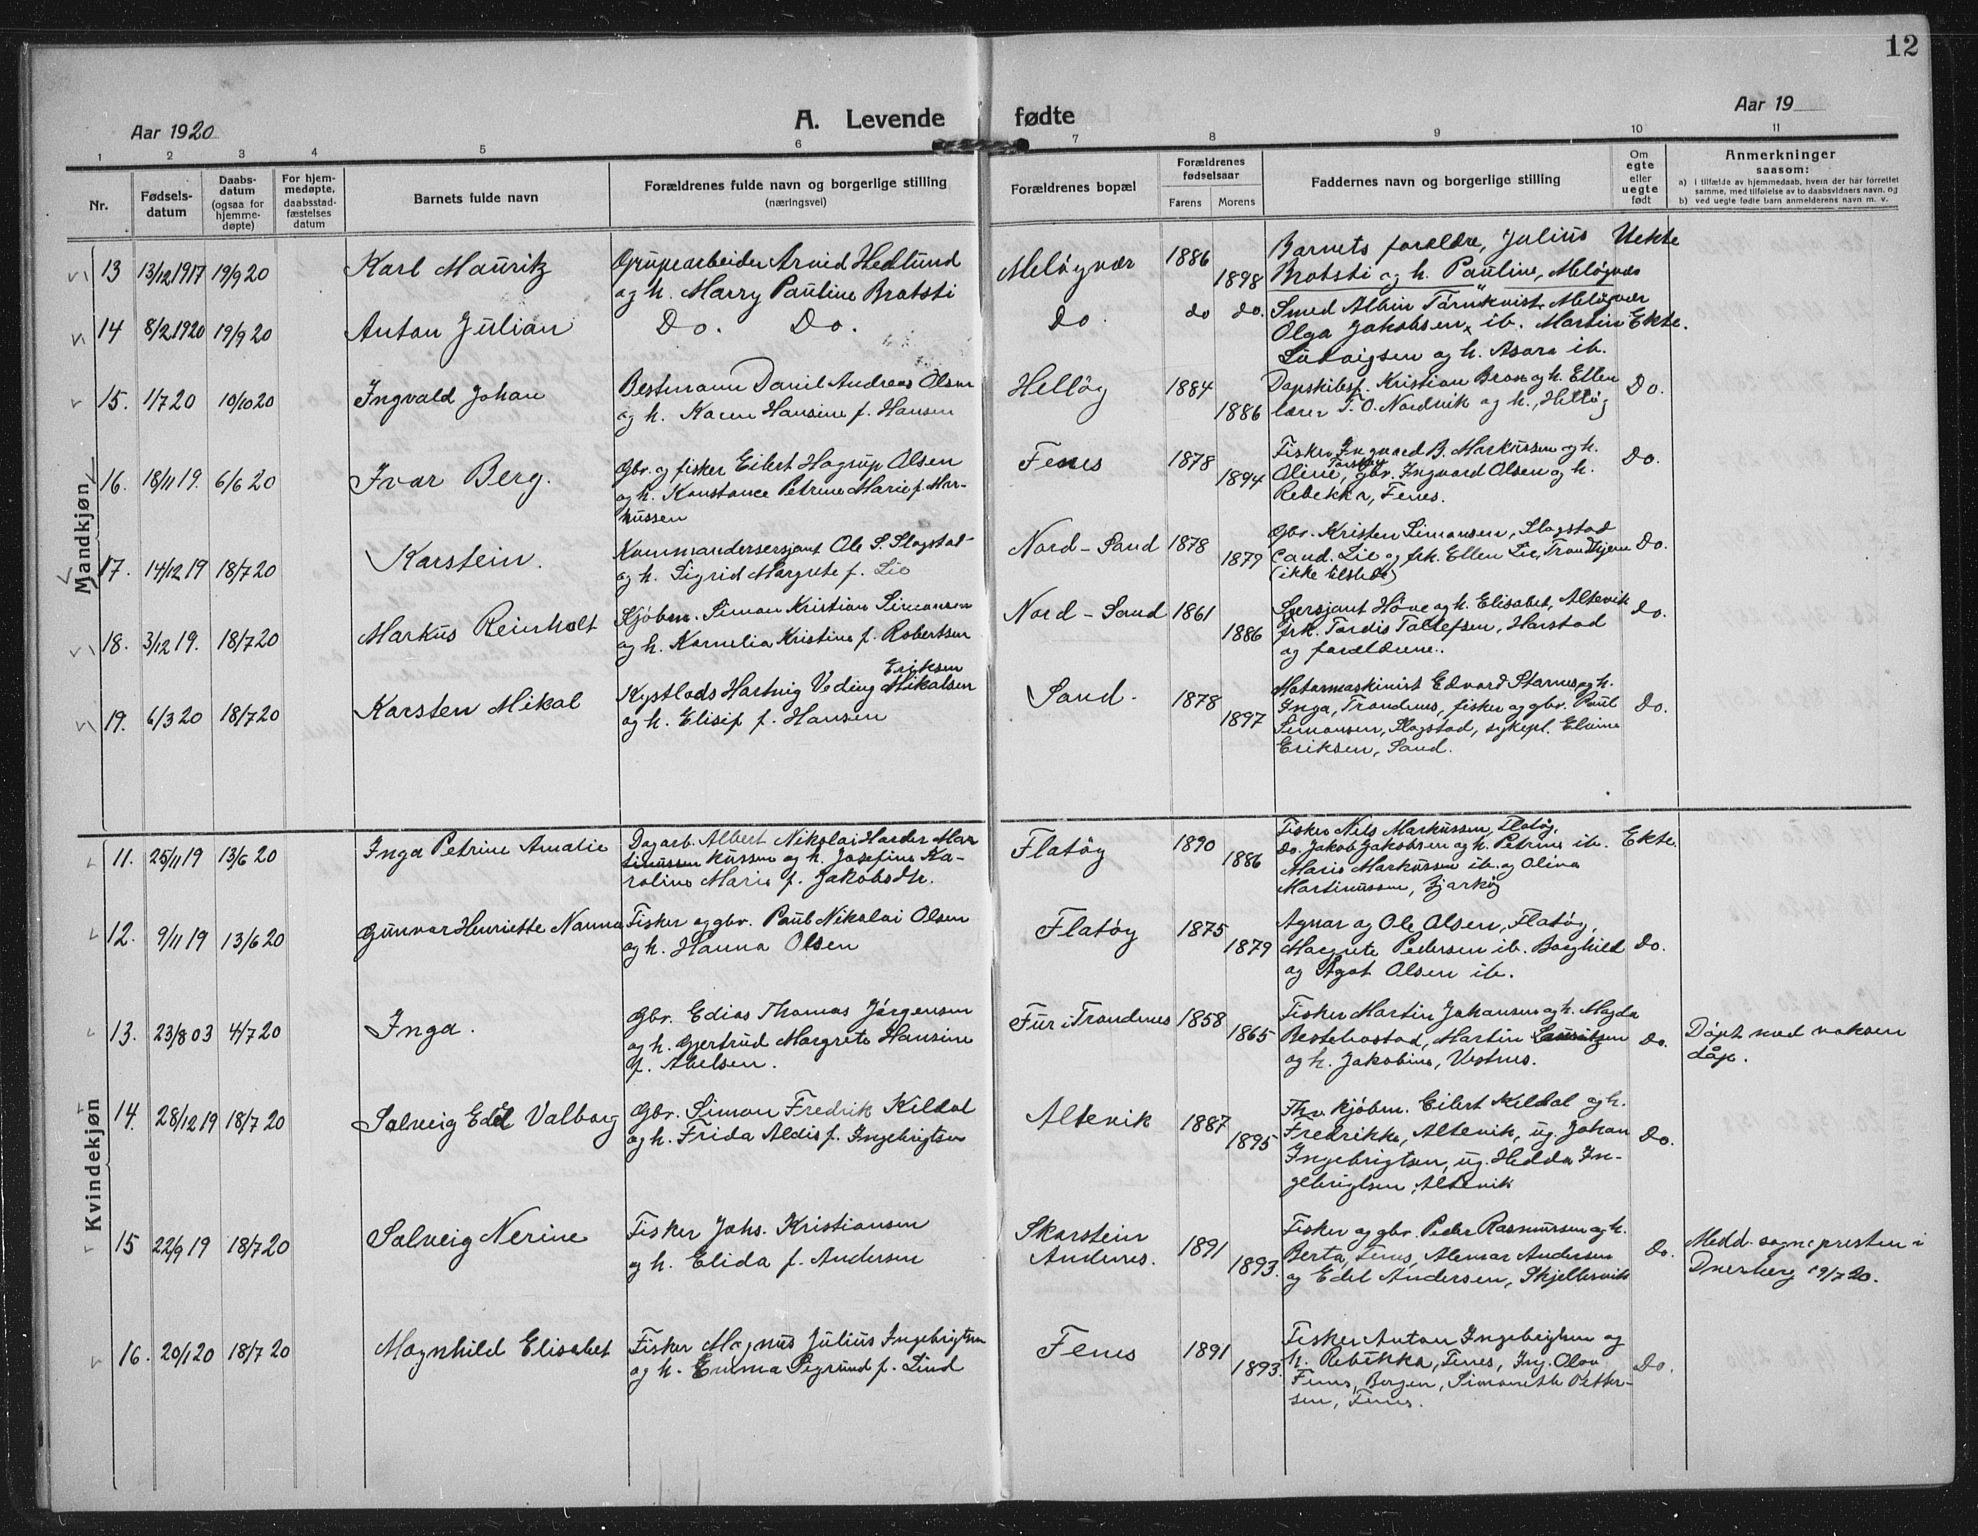 12
Aar 1920
A. Levende fødte
Aar 19
1 2 3 4 5 6 7 8 9 10 11
Nr.
Fødsels-
datum
Daabs-
datum
(ogsaa for
hjemme-
døpte)
For hjem-
medøpte,
daabsstad-
fæstelses
datum
Barnets fulde navn
Forældrenes fulde navn og borgerlige stilling
(næringsvei)
Forældrenes bopæl
Forældrenes
fødselsaar
Farens Morens
Faddernes navn og borgerlige stilling
Om
egte
eller
uegte
født
Anmerkninger
saasom:
a) i tilfælde av hjemmedaab, hvem der har forrettet
samme, med tilføielse av to daabsvidners navn, og
b) ved uegte fødte barn anmelderens navn m. v.
Mandkjøn
13 13/12 1917 19/9 20 Karl Mauritz
Grubearbeider Arvid Hedlund
og h. Marry Pauline Bratsti
Meløyvær 1886 1898
Barnets forældre, Julius
Bratsti og h. Pauline, Meløyvær
Uekte
14 8/2 1920 19/9 20 Anton Julian
Do. Do.
Do. do do.
Smed Albin Törnkvist, Meløyvær
Olga Jakobsen, ib. Martin
Ludvigsen og h. Asora ib.
Ekte.
15. 1/7 20 10/10 20 Ingvald Johan
Bestmann Danil Andreas Olsen
og h. Karen Hansine f. Hansen
Belløy 1884 1886
Dapskibsf. Kristian Brox og h. Ellen
lærer T. O. Nordvik og h., Helløy
Do.
16. 18/11 19. 6/6 20 Ivar Berg.
Gbr. og fisker Eilert Hagrup Olsen
og h. Konstance Petrine Marie f. Mar-
kussen
Fenes 1878 1894
Fisker Ingvard B. Markussen og h.
Oline, gbr. Ingvard Olsen og h.
Rebekka, Fenes.
Do.
17. 14/12 19 18/7 20 Karstein.
Kommandersersjant Ole S. Slagstad
og h. Sigrid Margrete f. Lie
Nord-Sand 1878 1879
Gbr. Kristen Simonsen, Slagstad
Cand. Lie og frk. Ellen Lie, Trondhjem
(ikke tilstede)
Do.
18. 3/12 19. 18/7 20 Markus Reinholt
Kjøbm. Simon Kristian Simonsen
og h. Kornelia Kristine f. Robertsen
Nord-Sand 1861 1886
Sersjant Höve og h. Elisabet, Altevik
frk. Tordis Tollefsen, Harstad
og forældrene.
Do.
19. 6/3 20 18/7 20 Karsten Mikal
Eriksen
Kystlods Hartvig Veding Mikalsen
og h. Elisif f. Hansen
Sand. 1878 1897
Motormaskinist Edvard Starnes og h.
Inga, Trondenes, fisker og gbr. Paul
Simonsen, Slagstad, sykepl. Elvine
Eriksen, Sand.
Do.
Kvindekjøn
11. 25/11 19 13/6 20 Inga Petrine Amalie
Dagarb. Albert Nikolai Harder Mar
kussen og h. Josefine Ka-
roline Marie f. Jakobsdtr.
Flatøy 1890 1886
Fisker Nils Markussen, Flatøy,
Do. Jakob Jakobsen og h. Petrine ib.
Marie Markussen ib. og Olina
Martinussen, Bjarkøy
Ekte.
12. 9/11 19 13/6 20 Gunvor Henriette Nanna
Fisker og gbr. Paul Nikolai Olsen
og h. Hanna Olsen
Flatøy 1875 1879
Agnar og Ole Olsen, Flatøy,
Margrete Pedersen ib. Borghild
og Agot Olsen ib.
Do.
13. 23/8 03 4/7 20 Inga.
Gbr. Edias Thomas Jørgensen
og h. Gjertrud Margrete Hansine
f. Abelsen.
Fur i Trondenes 1858 1865
Fisker Martin Johansen og h. Magda
Bessebostad, Martin Lauritzen
og h. Jakobine, Vestnes.
Do.
Døpt med voksen
dåp.
14. 28/12 19 18/7 20 Solveig Edel Valborg
Gbr. Simon Fredrik Kildal
og h. Frida Aldis f. Ingebrigtsen
Altevik 1887 1895
Fhv. kjøbm. Eilert Kildal og h.
Fredrikke, Altevik, ug. Johan
Ingebrigtsen, ug. Hedda In-
gebrigtsen, Altevik
Do.
15 22/9 19 18/7 20 Solveig Nerine
Fisker Johs. Kristiansen
og h. Elida f. Andersen
Skarstein
Andenes. 1891 1893.
Fisker og gbr. Peder Rasmussen og h.
Berta, Fenes, Alensar Andersen
og Edel Andersen, Skjellesvik
Do.
Medd. sognepresten i
Dverberg 19/7 20.
16. 20/1 20 18/7 20 Magnhild Elisabet
Fisker Magnus Julius Ingebrigtsen
og h. Emma Sigrund f. Lind
Fenes 1891 1893.
Fisker Anton Ingebrigtsen og
h. Rebekka, Fenes, Ing. Olsen
Fenes, Borgen, Simonette Petter-
sen, Fenes.
Do.